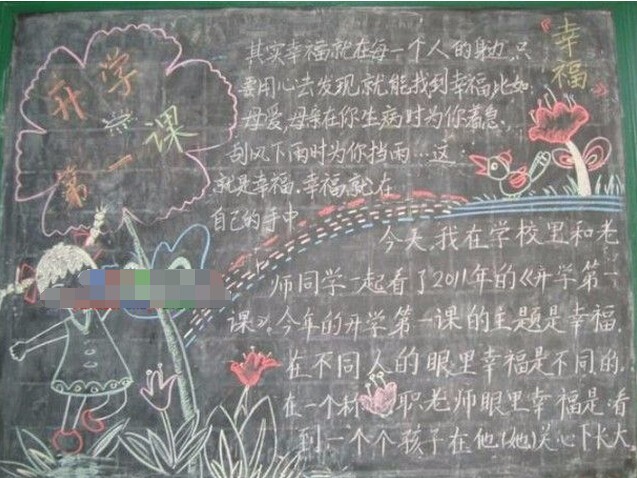 开学
第一课
《幸福》
其实幸福就在每一个人的身边,只
要用心去发现,就能找到幸福比如:
母爱,母亲在你生病时为你着急,
刮风下雨时为你挡雨…这
就是幸福,幸福就在
自己的手中
今天,我在学校里和老
师同学一起看了2011年的《开学第一
课》,今年的开学第一课的主题是幸福.
在不同人的眼里幸福是不同的.
在一个 职老师眼里幸福是:看
到一个个孩子在他(她)关心下长大